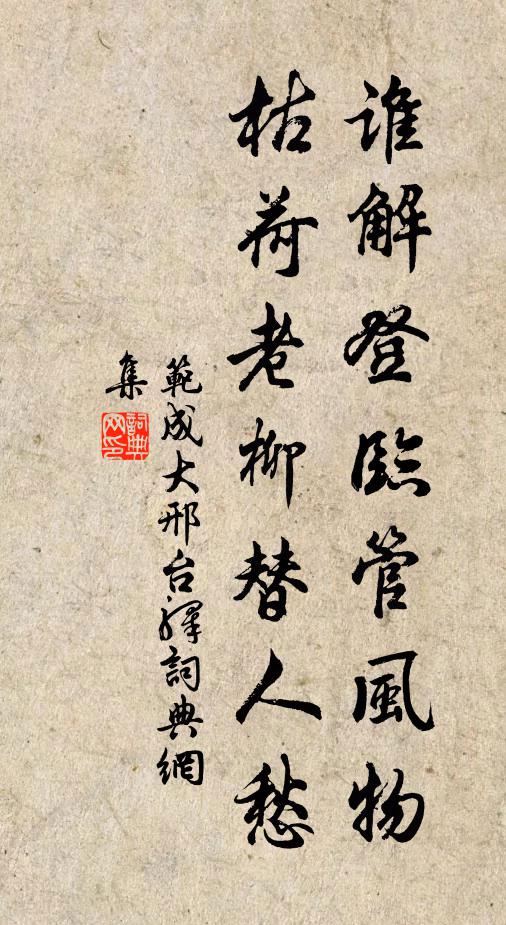 誰解登臨管風物
枯荷老柳替人愁
範成大邢台驛詞典網
集
詞典
网印